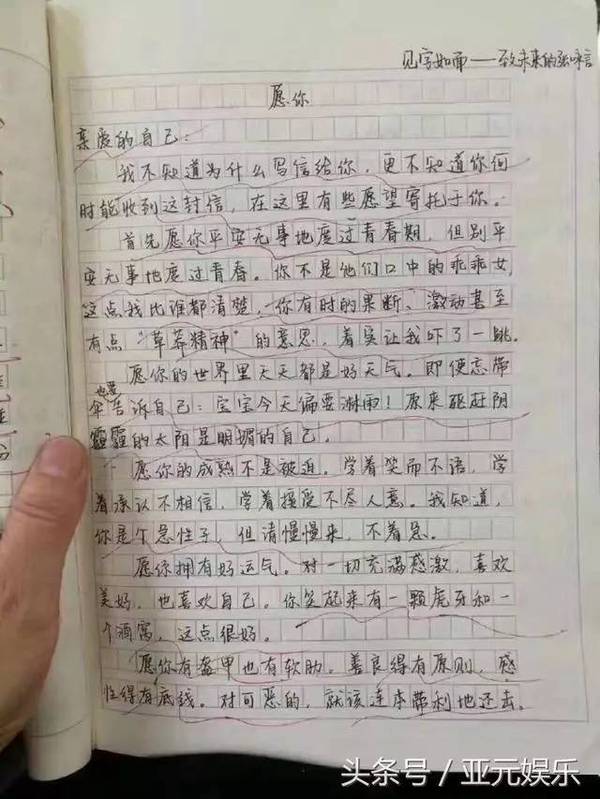 见字如面——致未来的张咏言
愿你
亲爱的自己:
我不知道为什么写信给你,更不知道你何
时能收到这封信,在这里有些愿望寄托于你。
首先愿你平安无事地度过青春期,但别平
安无事地度过青春。你不是他们口中的乖乖女,
这点我比谁都清楚,你有时的果断、激动甚至
有点“草莽精神”的意思,着实让我吓了一跳。
愿你的世界里天天都是好天气。即使忘带
伞也要告诉自己:宝宝今天偏要淋雨!原来驱赶阴
霾的太阳是明媚的自己。
愿你的成熟不是被迫。学着笑而不语,学
着承认不相信,学着接受不尽人意。我知道,
你是个急性子,但请慢慢来,不着急。
愿你拥有好运气。对一切充满感激,喜欢
美好,也喜欢自己。你笑起来有一颗虎牙和一
个酒窝,这点很好。
愿你有盔甲也有软肋。善良得有原则,感
性得有底线。对可恶的,就该连本带利地还击。
头条号/亚元娱乐